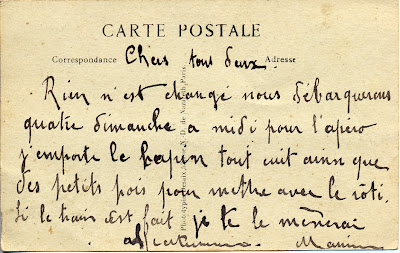 CARTE POSTALE
Correspondance
Adresse
Chers tous deux.
Rien n'est changé nous débarquerons
quatre dimanche a midi pour l'apéro
j'emporte le lapin tout cuit ainsi que
des petits pois pour mettre avec le rôti.
Si le train est fait je te le mènerai